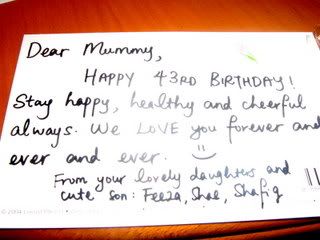 Dear Mummy,
HAPPY 43RD BIRTHDAY!
Stay happy, healthy and cheerful
always. We LOVE you forever and
ever and ever.
From your lovely daughters and
cute son: Feeza, Shae, Shafiq
© 2004